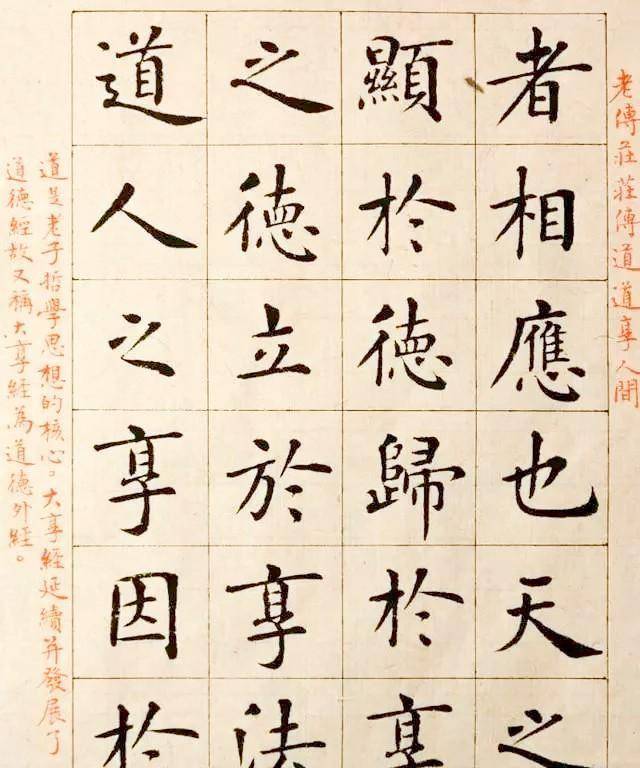 老傳莊莊傳道道享人間
者相應也天之
顯於德歸於享
之德立於享法
道人之享因於
道是老子哲學思想的核心。大享經延續并發展了
道德經故又稱大享經為道德外經。